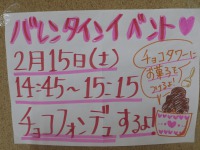 バレンタインイベント♥
2月15日(土)
14:45~15:15
チョコフォンデュするよ!
チョコタワーに
お菓子を
つけるよ!